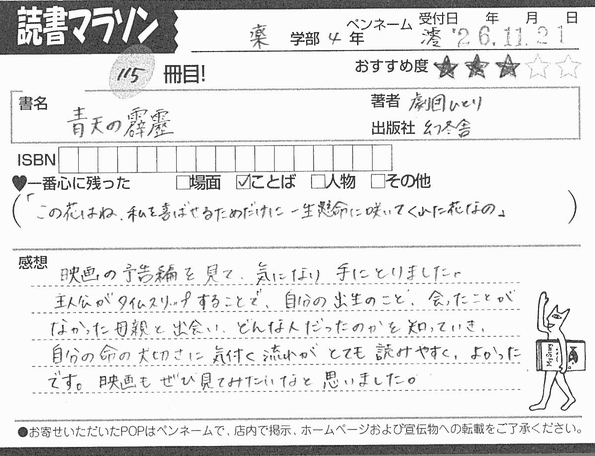 読書マラソン
薬 学部 4 年
ペンネーム 澪
受付日 年 月 日
'26.11.21
115 冊目!
おすすめ度 ★★★☆☆
書名 青天の霹靂
著者 劇団ひとり
出版社 幻冬舎
ISBN
♥一番心に残った □場面 ☑ことば □人物 □その他
(「この花はね、私を喜ばせるためだけに一生懸命に咲いてくれた花なの」)
感想
映画の予告編を見て、気になり手にとりました。
主人公がタイムスリップすることで、自分の出生のこと、会ったことが
なかった母親と出会い、どんな人だったのかを知っていき、
自分の命の大切さに気付く流れがとても読みやすく、よかった
です。映画もぜひ見てみたいなと思いました。
●お寄せいただいたPOPはペンネームで、店内で掲示、ホームページおよび宣伝物への転載をご了承ください。